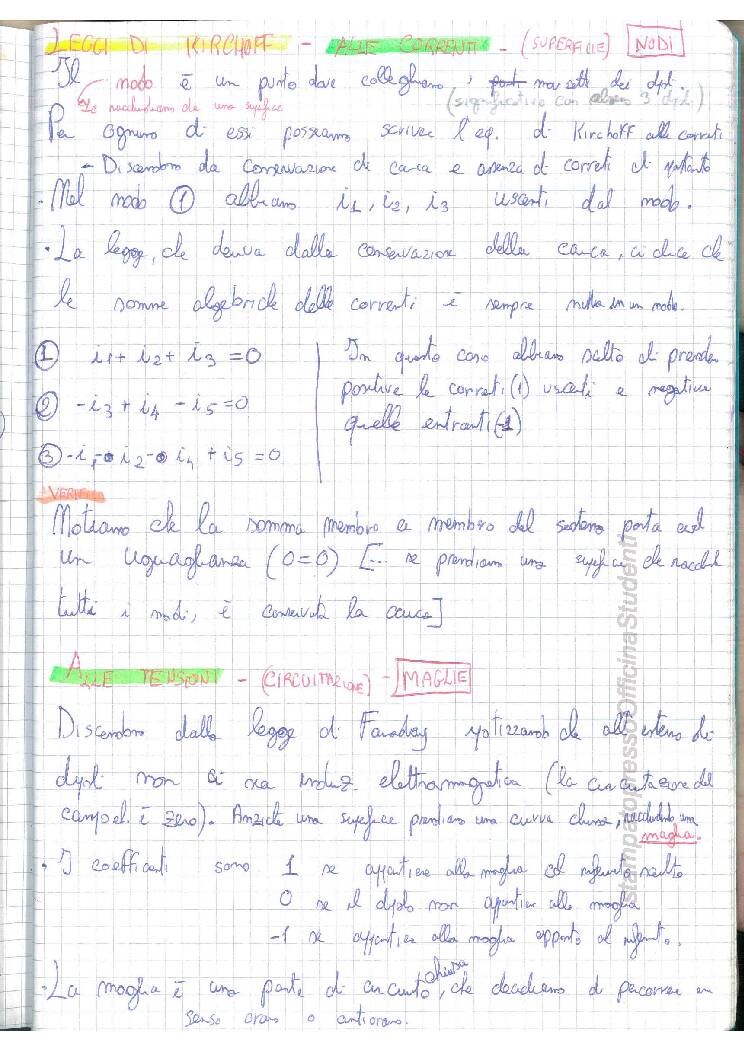 LEGGI DI KIRCHOFF - ALLE CORRENTI - (SUPERFICIE) NODI
Il nodo è un punto dove colleghiamo i morsetti dei dipli.
(significativo con almeno 3 dipli)
Lo racchiudiamo da una superfice
Per ognuno di essi possiamo scrivere l'eq. di Kirchoff alle correti
- Discendono da conservazione di carica e assenza di correti di
· Nel nodo 1 abbiamo i1, i2, i3 uscenti dal nodo.
· La legge, che deriva dalla conservazione della carica, ci dice che
le somme algebriche delle correnti è sempre nulla in un nodo.
1 i1 + i2 + i3 = 0
2 -i3 + i4 - i5 = 0
3 -i1 - i2 - i4 + i5 = 0
In questo caso abbiamo scelto di prendere
positive le correti (1) uscenti e negative
quelle entranti (-1)
VERIFICA
Notiamo che la somma membro a membro del sistema porta ad
un uguaglianza (0=0) [... se prendiamo una superfice che racchiude
tutti i nodi, è conservata la carica]
ALLE TENSIONI - (CIRCUITAZIONE) - MAGLIE
Discendono dalla legge di Faraday ipotizzando che all'esterno dei
dipli non ci sia induz. elettromagnetica (la circuitazione del
campo el. è zero). Anziché una superfice prendiamo una curva chiusa, racchiudendo una
maglia.
· I coefficienti sono 1 se appartiene alla maglia col riferimento scelto
0 se il diplo non appartiene alla maglia
-1 se appartiene alla maglia opposto al riferimento.
· La maglia è una parte di circuito chiusa, che decidiamo di percorrere in
senso orario o antiorario.
stampato presso OfficinaStudenti